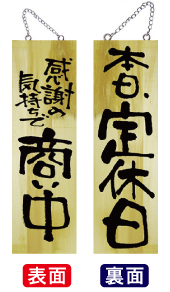 感謝の
気持ちで
商い中
表面
本日、定休日
裏面